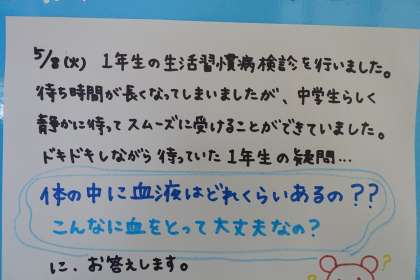 5/8(火) 1年生の生活習慣病検診を行いました。
待ち時間が長くなってしまいましたが、中学生らしく
静かに待ってスムーズに受けることができていました。
ドキドキしながら待っていた1年生の疑問…
体の中に血液はどれくらいあるの??
こんなに血をとって大丈夫なの?
に、お答えします。
? ?